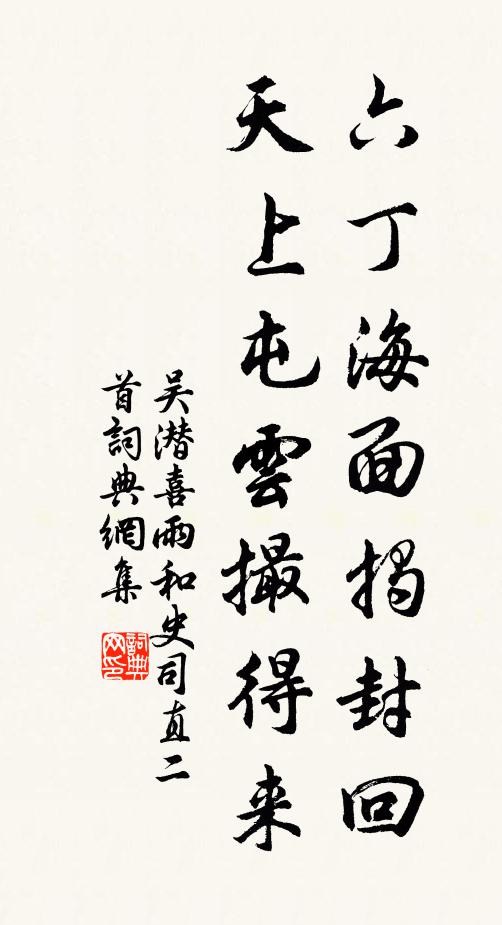 六丁海面揭封回
天上屯雲撮得来
吴潜喜雨和史司直二
首詞典網集
詞典网印